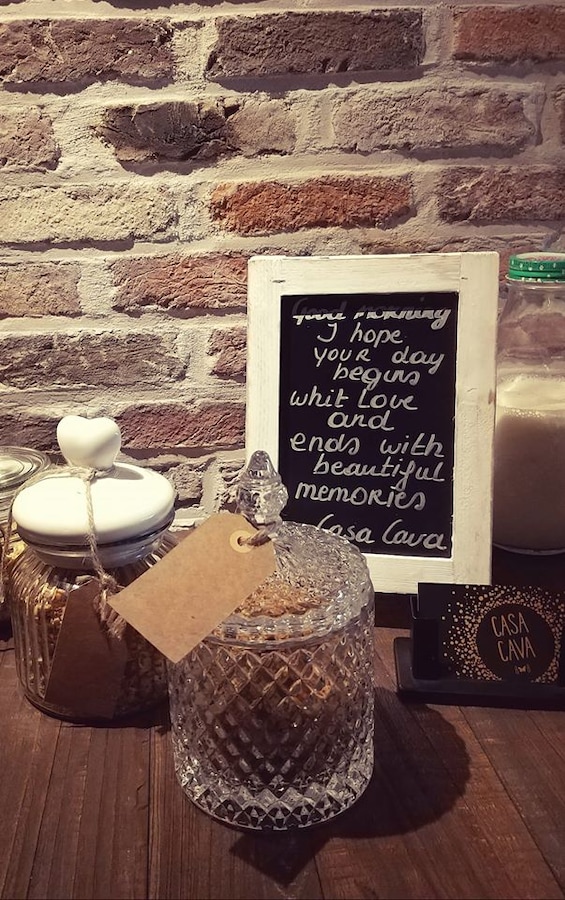 Good morning
I hope
your day
begins
whit Love
and
ends with
beautiful
memories
Casa Cava
CASA
CAVA